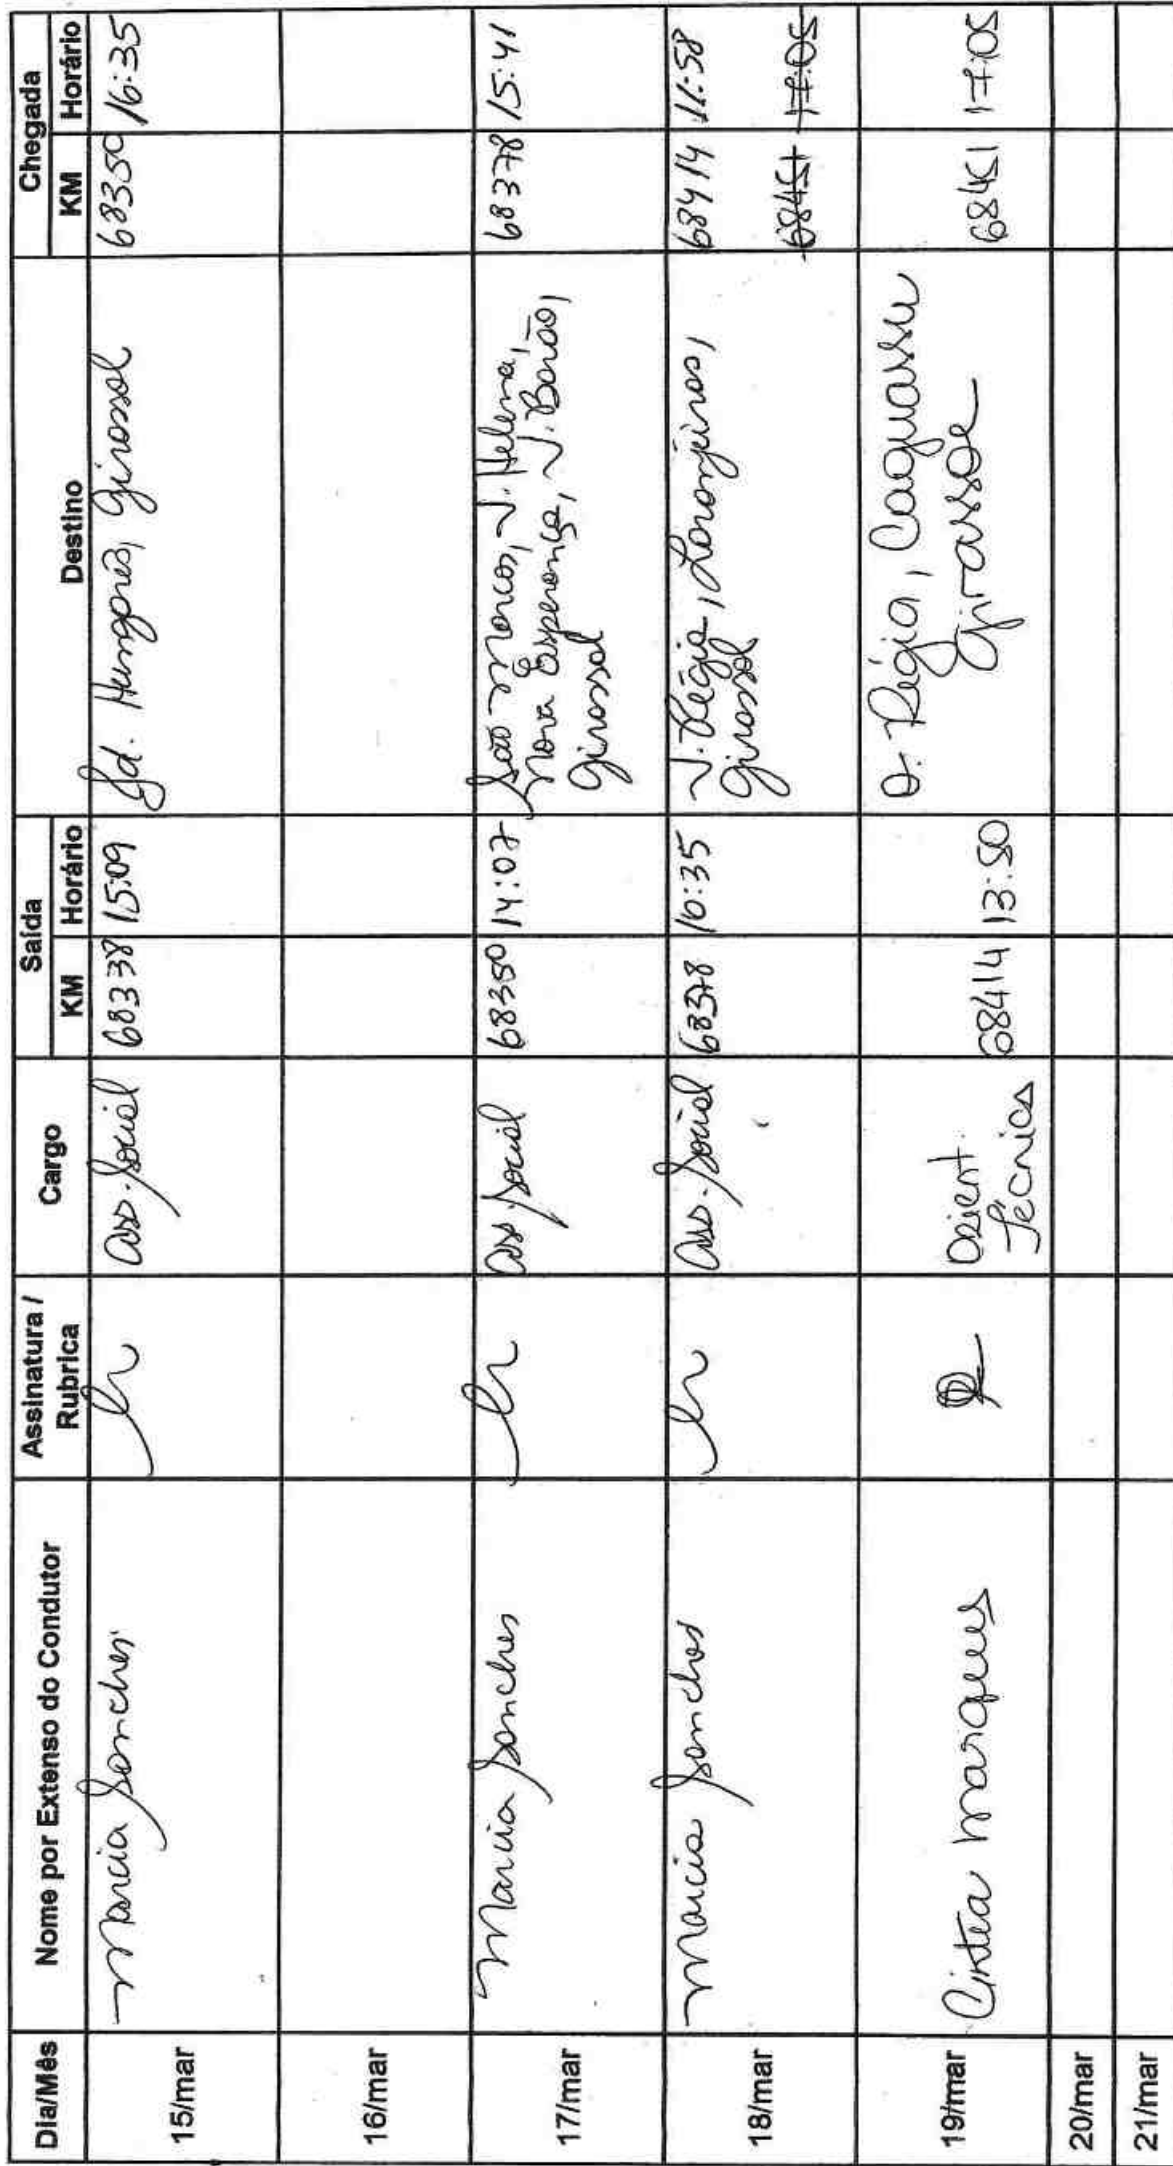 Dia/Mês Nome por Extenso do Condutor Assinatura / Rubrica Cargo Saída Destino Chegada
KM Horário KM Horário
15/mar Marcia Sanches Ass. Social 68338 15:09 Jd. Hungarês, Girassol 68350 16:35
16/mar
17/mar Marcia Sanches Ass. Social 68350 14:07 São Marcos, J. Helena, 68378 15:41
Nova Esperança, J. Barão,
Girassol
18/mar Marcia Sanches Ass. Social 68378 10:35 V. Régia, Laranjeiras, 68414 11:58
Girassol 68451 17:05
19/mar Cintea Marques Orient. Técnica 68414 13:50 Régia, Caguassu 68451 17:05
Girassol
20/mar
21/mar